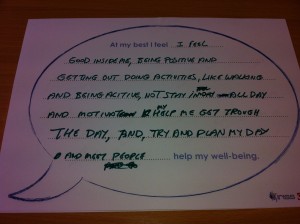 At my best I feel I FEEL
GOOD INSIDE ME, BEING POSITIVE AND
GETTING OUT DOING ACTIVITIES, LIKE WALKING
AND BEING ACITIVE, NOT STAY IN ALL DAY
AND MOTIVAT MY HELP ME GET TROUGH
THE DAY, AND, TRY AND PLAN MY DAY
AND MEET PEOPLE help my well-being.